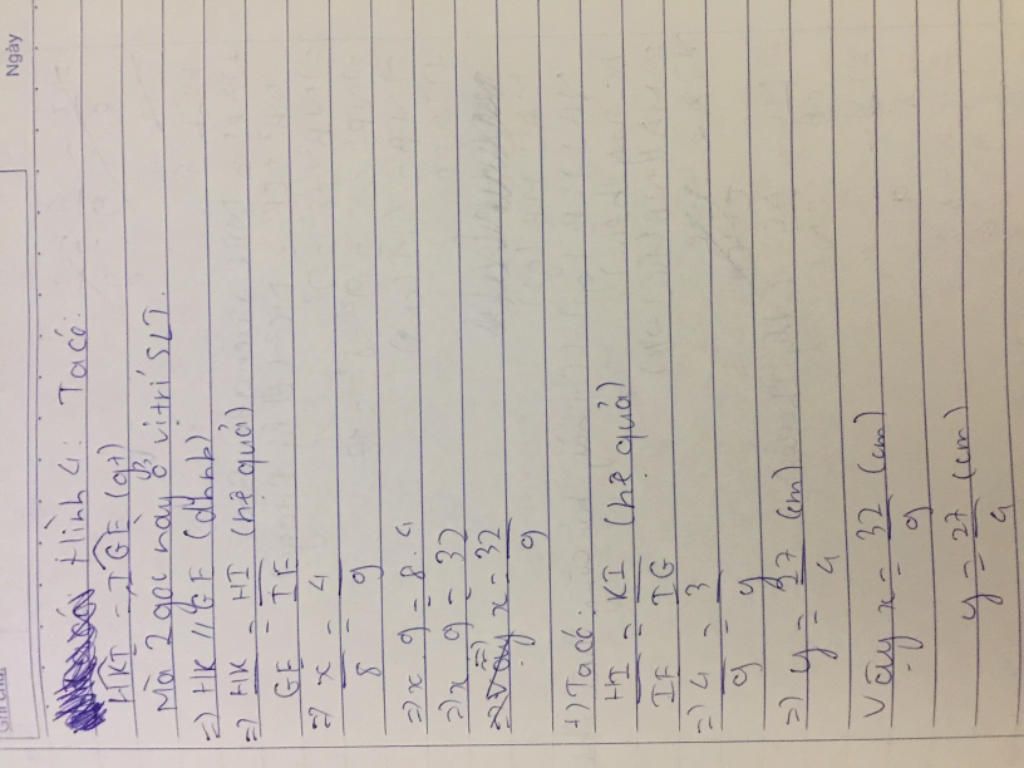 Ngày
Hình 4: Ta có:
HKI = IGF (gt)
Mà 2 góc này ở vị trí SLT.
=) HK // GF (dhnb)
=) HK/GF = HI/IF (hệ quả)
=) x/8 = 4/9
=) x 9 = 8.4
=) x 9 = 32
=) x = 32/9
+) Ta có:
HI/IF = KI/IG (hệ quả)
=) 4/9 = 3/y
=) y = 27/4 (cm)
Vậy x = 32/9 (cm)
y = 27/4 (cm)